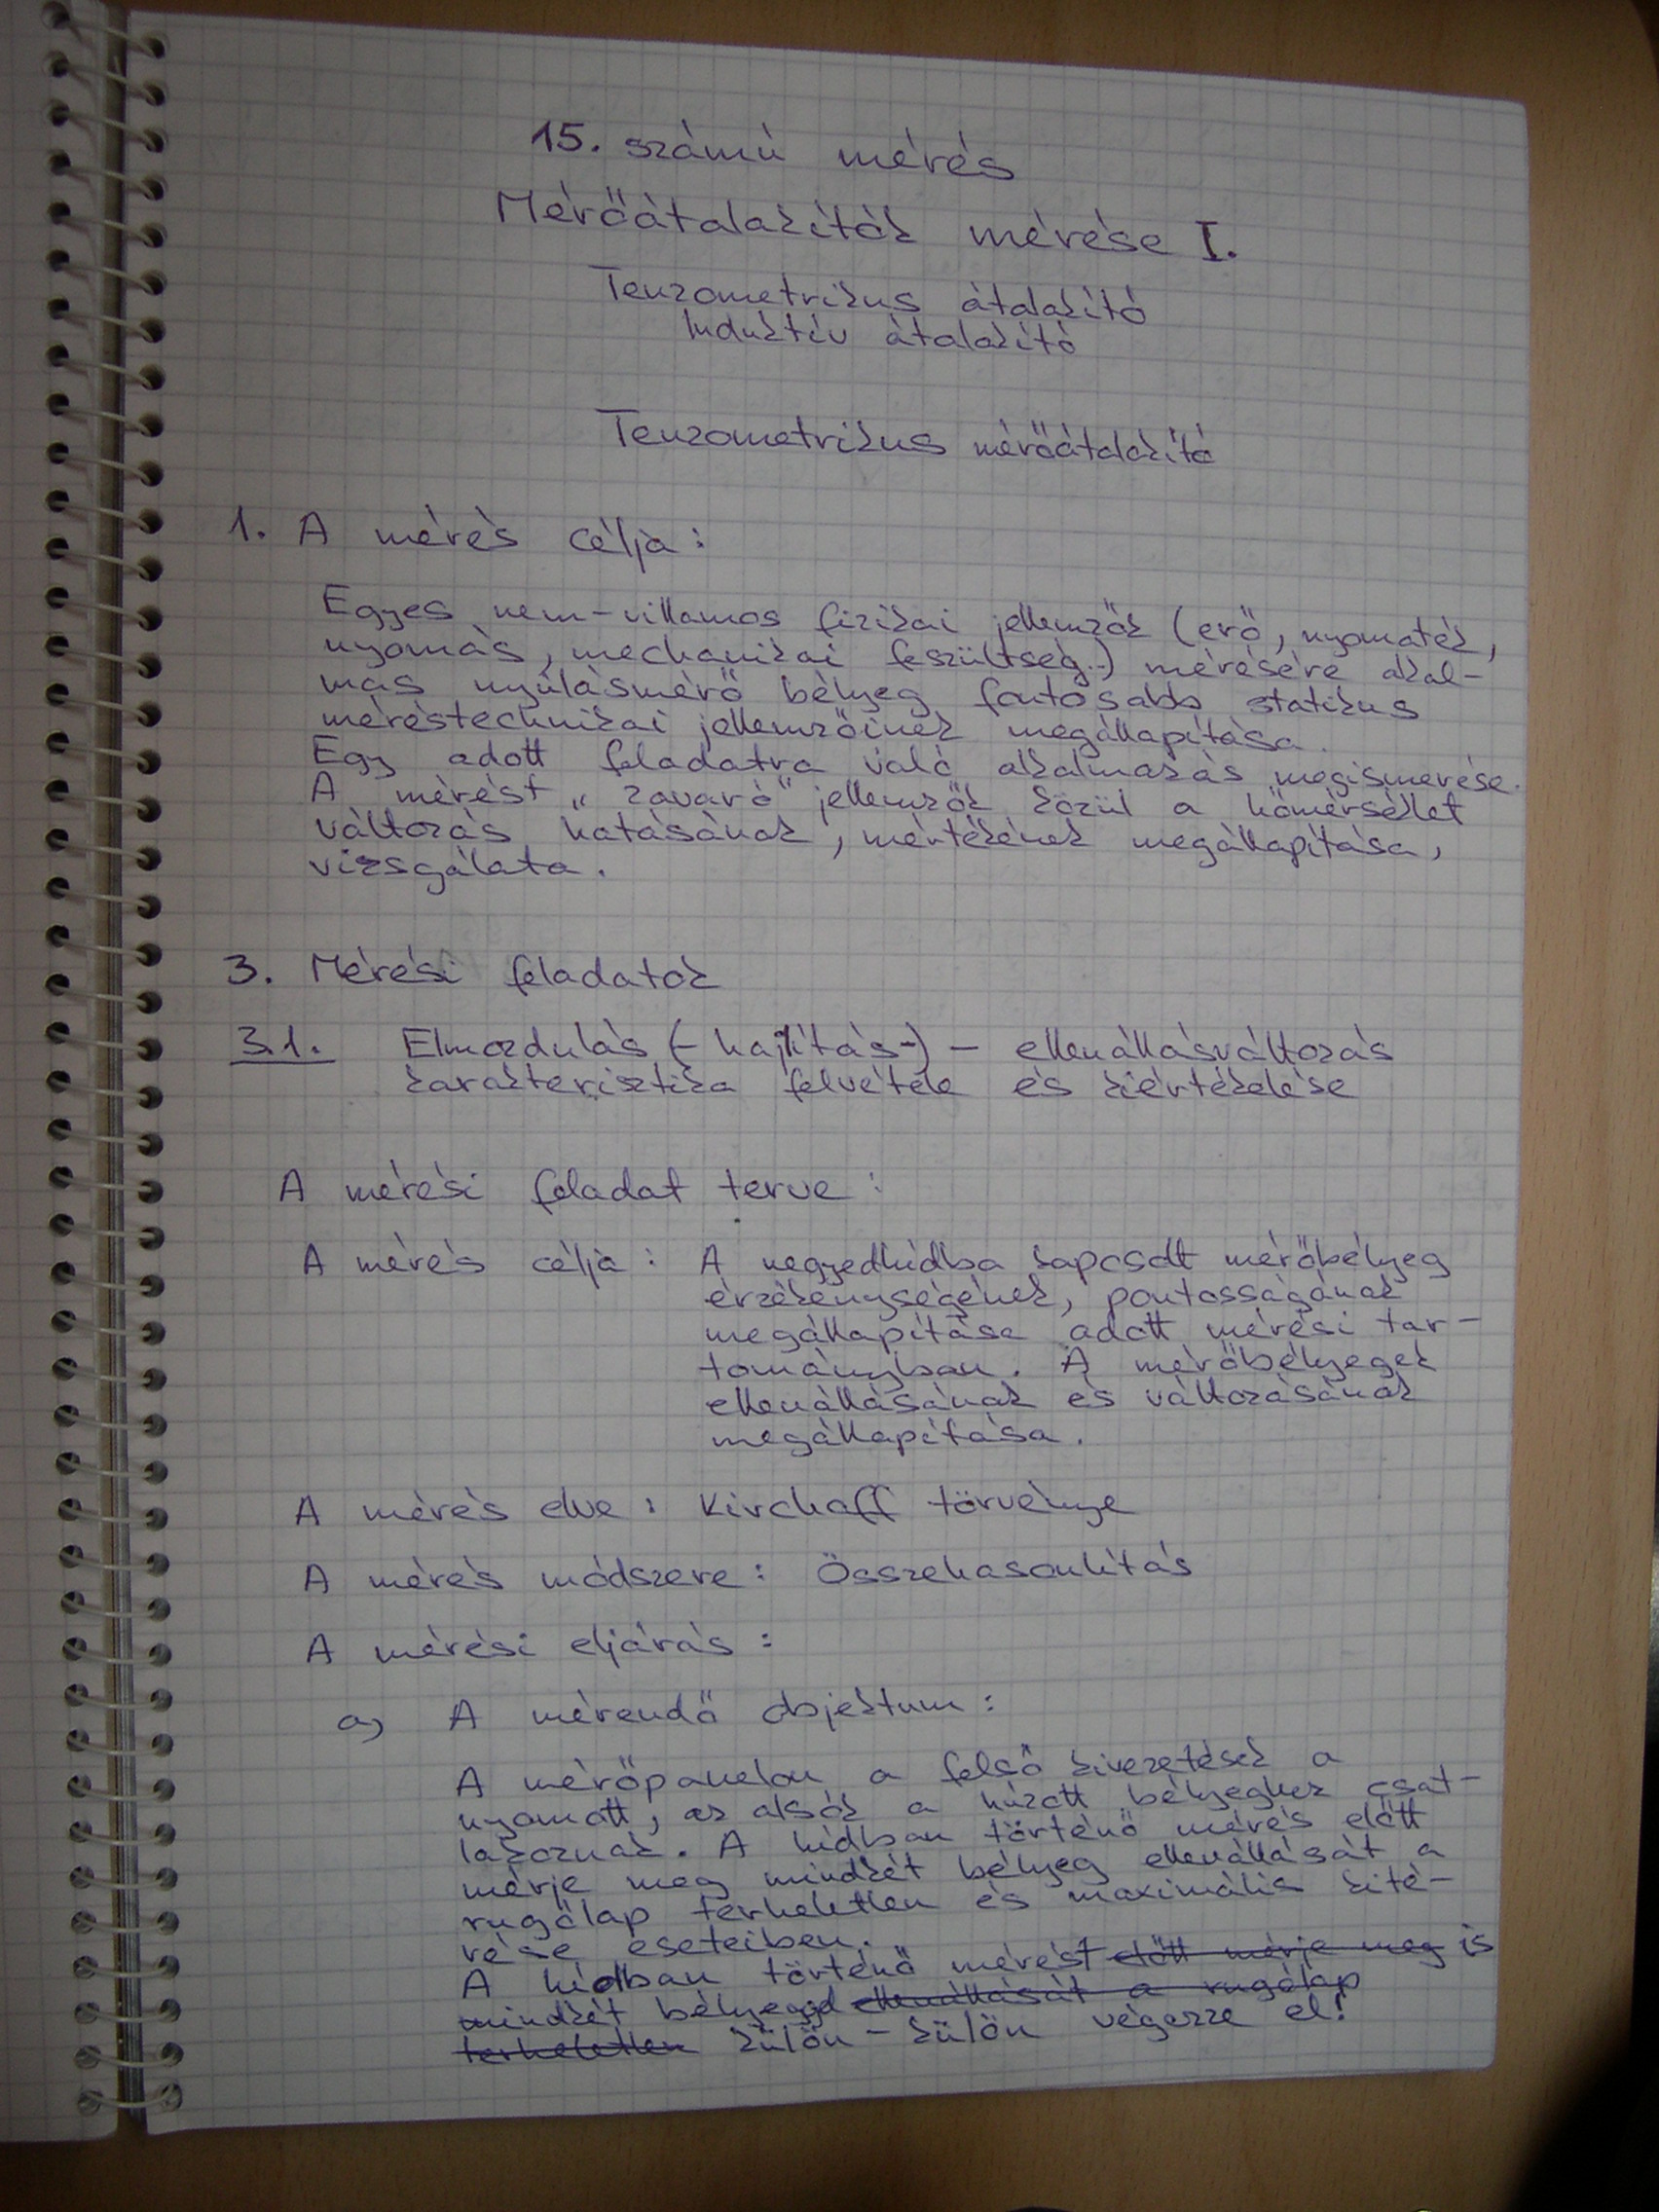 15. számú mérés
Mérőátalakítók mérése I.
Tenzometrikus átalakító
Induktív átalakító
Tenzometrikus mérőátalakító
1. A mérés célja:
Egyes nem-villamos fizikai jellemzők (erő, nyomaték,
nyomás, mechanikai feszültség..) mérésére alkal-
mas nyúlásmérő bélyeg fontosabb statikus
méréstechnikai jellemzőinek megállapítása.
Egy adott feladatra való alkalmazás megismerése.
A mérést „zavaró" jellemzők közül a hőmérséklet
változás hatásának, mértékének megállapítása,
vizsgálata.
3. Mérési feladatok
3.1. Elmozdulás (-hajlítás-) - ellenállásváltozás
karakterisztika felvétele és kiértékelése
A mérési feladat terve:
A mérés célja: A negyedhídba kapcsolt mérőbélyeg
érzékenységének, pontosságának
megállapítása adott mérési tar-
tományban. A mérőbélyegek
ellenállásának és változásának
megállapítása.
A mérés elve: Kirchoff törvénye
A mérés módszere: Összehasonlítás
A mérési eljárás:
a, A mérendő objektum:
A mérőpanelon a felső kivezetések a
nyomott, az alsók a húzott bélyeghez csat-
lakoznak. A hídban történő mérés előtt
mérje meg mindkét bélyeg ellenállását a
rugólap terheletlen és maximális kité-
rése eseteiben.
A hídban történő mérést előtt mérje meg is
mindkét bélyeggel ellenállását a rugólap
terheletlen külön-külön végezze el!